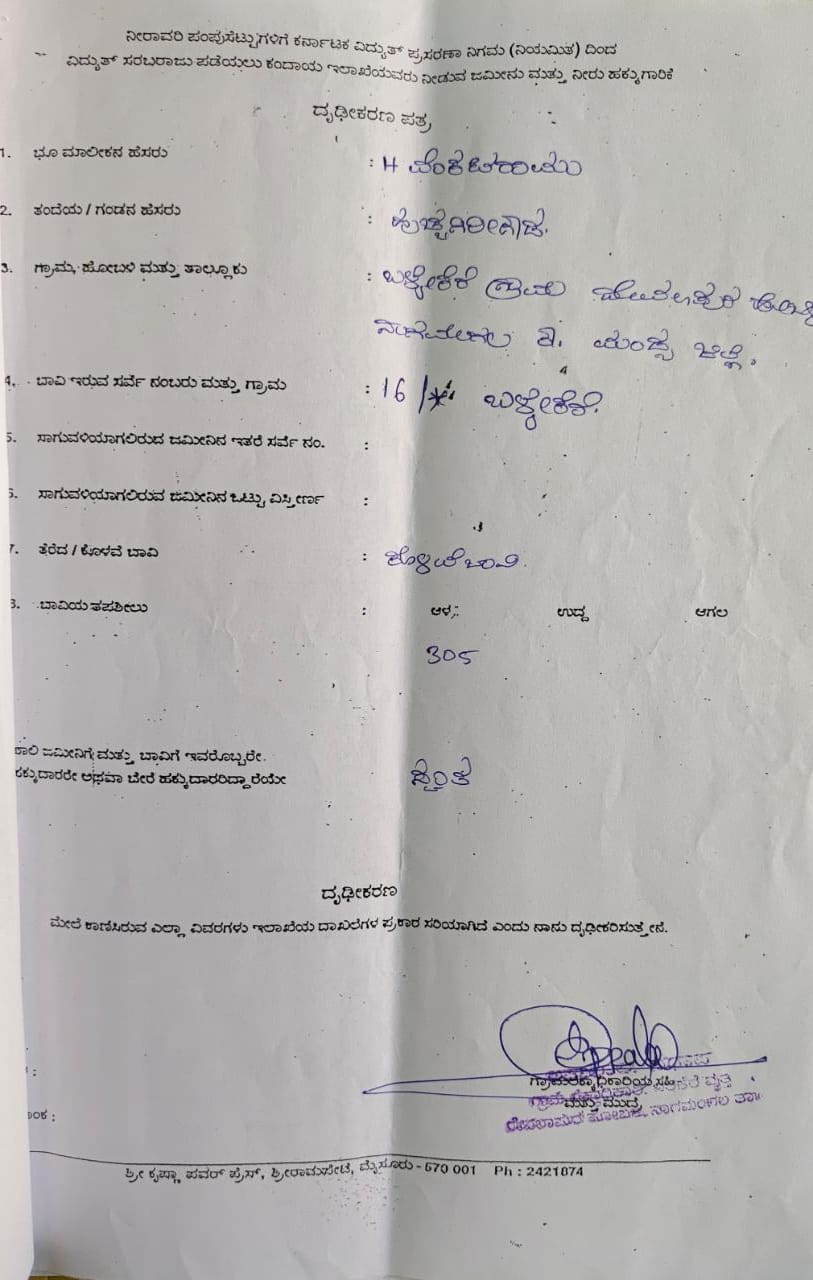 ನೀರಾವರಿ ಪಂಪುಸೆಟ್ಟುಗಳಿಗೆ ಕರ್ನಾಟಕ ವಿದ್ಯುತ್ ಪ್ರಸರಣಾ ನಿಗಮ (ನಿಯಮಿತ) ದಿಂದ
ವಿದ್ಯುತ್ ಸರಬರಾಜು ಪಡೆಯಲು ಕಂದಾಯ ಇಲಾಖೆಯವರು ನೀಡುವ ಜಮೀನು ಮತ್ತು ನೀರು ಹಕ್ಕುಗಾರಿಕೆ
ದೃಢೀಕರಣ ಪತ್ರ
1. ಭೂ ಮಾಲೀಕನ ಹೆಸರು : H ವೆಂಕಟರಾಮು
2. ತಂದೆಯ / ಗಂಡನ ಹೆಸರು :
3. ಗ್ರಾಮ, ಹೋಬಳಿ ಮತ್ತು ತಾಲ್ಲೂಕು : ಬಳ್ಳೇಕೆರೆ ಗ್ರಾಮ
ನಾಗಮಂಗಲ ತಾ. ಮಂಡ್ಯ ಜಿಲ್ಲೆ.
4. ಬಾವಿ ಇರುವ ಸರ್ವೆ ನಂಬರು ಮತ್ತು ಗ್ರಾಮ : 16 / ಬಳ್ಳೇಕೆರೆ.
5. ಸಾಗುವಳಿಯಾಗಲಿರುದ ಜಮೀನಿನ ಇತರೆ ಸರ್ವೆ ನಂ. :
6. ಸಾಗುವಳಿಯಾಗಲಿರುವ ಜಮೀನಿನ ಒಟ್ಟು ವಿಸ್ತೀರ್ಣ :
7. ತೆರೆದ / ಕೊಳವೆ ಬಾವಿ : ಕೊಳವೆ ಬಾವಿ.
8. ಬಾವಿಯ ತಪಶೀಲು : ಆಳ ಉದ್ದ ಅಗಲ
305
ಕಾಲಿ ಜಮೀನಿಗೆ ಮತ್ತು ಬಾವಿಗೆ ಇವರೊಬ್ಬರೇ
ಹಕ್ಕುದಾರರೇ ಅಥವಾ ಬೇರೆ ಹಕ್ಕುದಾರರಿದ್ದಾರೆಯೇ ಸ್ವಂತ
ದೃಢೀಕರಣ
ಮೇಲೆ ಕಾಣಿಸಿರುವ ಎಲ್ಲಾ ವಿವರಗಳು ಇಲಾಖೆಯ ದಾಖಲೆಗಳ ಪ್ರಕಾರ ಸರಿಯಾಗಿದೆ ಎಂದು ನಾನು ದೃಢೀಕರಿಸುತ್ತೇನೆ.
ಗ್ರಾಮಲೆಕ್ಕಾಧಿಕಾರಿಯ ಸಹಿ
ಮತ್ತು ಮುದ್ರೆ
ದೇವಲಾಪುರ ಹೋಬಳಿ, ನಾಗಮಂಗಲ ತಾ॥
ಶ್ರೀ ಕೃಷ್ಣಾ ಪವರ್ ಪ್ರೆಸ್, ಶ್ರೀರಾಮಪೇಟೆ, ಮೈಸೂರು - 570 001 Ph : 2421874